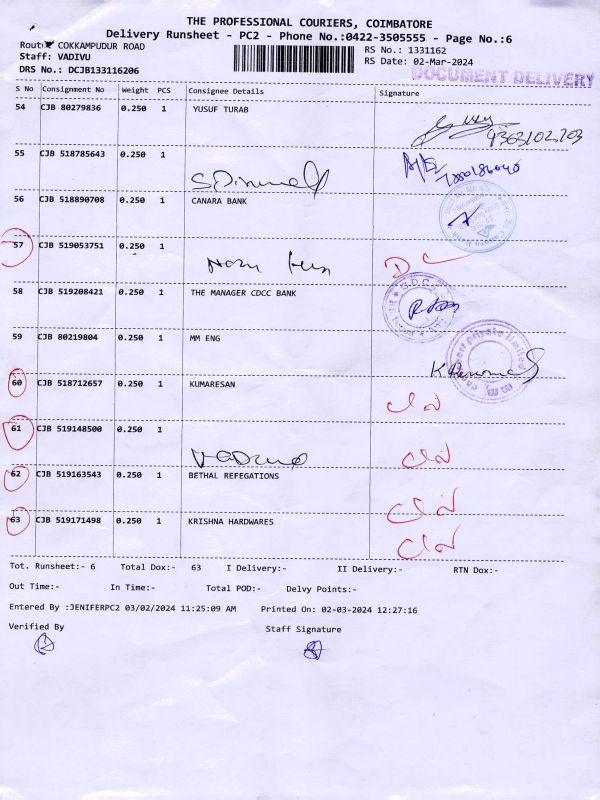 THE PROFESSIONAL COURIERS, COIMBATORE
Delivery Runsheet - PC2 - Phone No.:0422-3505555 - Page No.:6
Route: COKKAMPUDUR ROAD
RS No.: 1331162
Staff: VADIVU
RS Date: 02-Mar-2024
DRS No.: DCJB133116206
DOCUMENT DELIVERY
S No Consignment No Weight PCS Consignee Details Signature
54 CJB 80279836 0.250 1 YUSUF TURAB
55 CJB 518785643 0.250 1
56 CJB 518890708 0.250 1 CANARA BANK
57 CJB 519053751 0.250 1
58 CJB 519208421 0.250 1 THE MANAGER CDCC BANK
59 CJB 80219804 0.250 1 MM ENG
60 CJB 518712657 0.250 1 KUMARESAN
61 CJB 519148500 0.250 1
62 CJB 519163543 0.250 1 BETHAL REFEGATIONS
63 CJB 519171498 0.250 1 KRISHNA HARDWARES
Tot. Runsheet:- 6 Total Dox:- 63 I Delivery:- II Delivery:- RTN Dox:-
Out Time:- In Time:- Total POD:- Delvy Points:-
Entered By :JENIFERPC2 03/02/2024 11:25:09 AM Printed On: 02-03-2024 12:27:16
Verified By Staff Signature